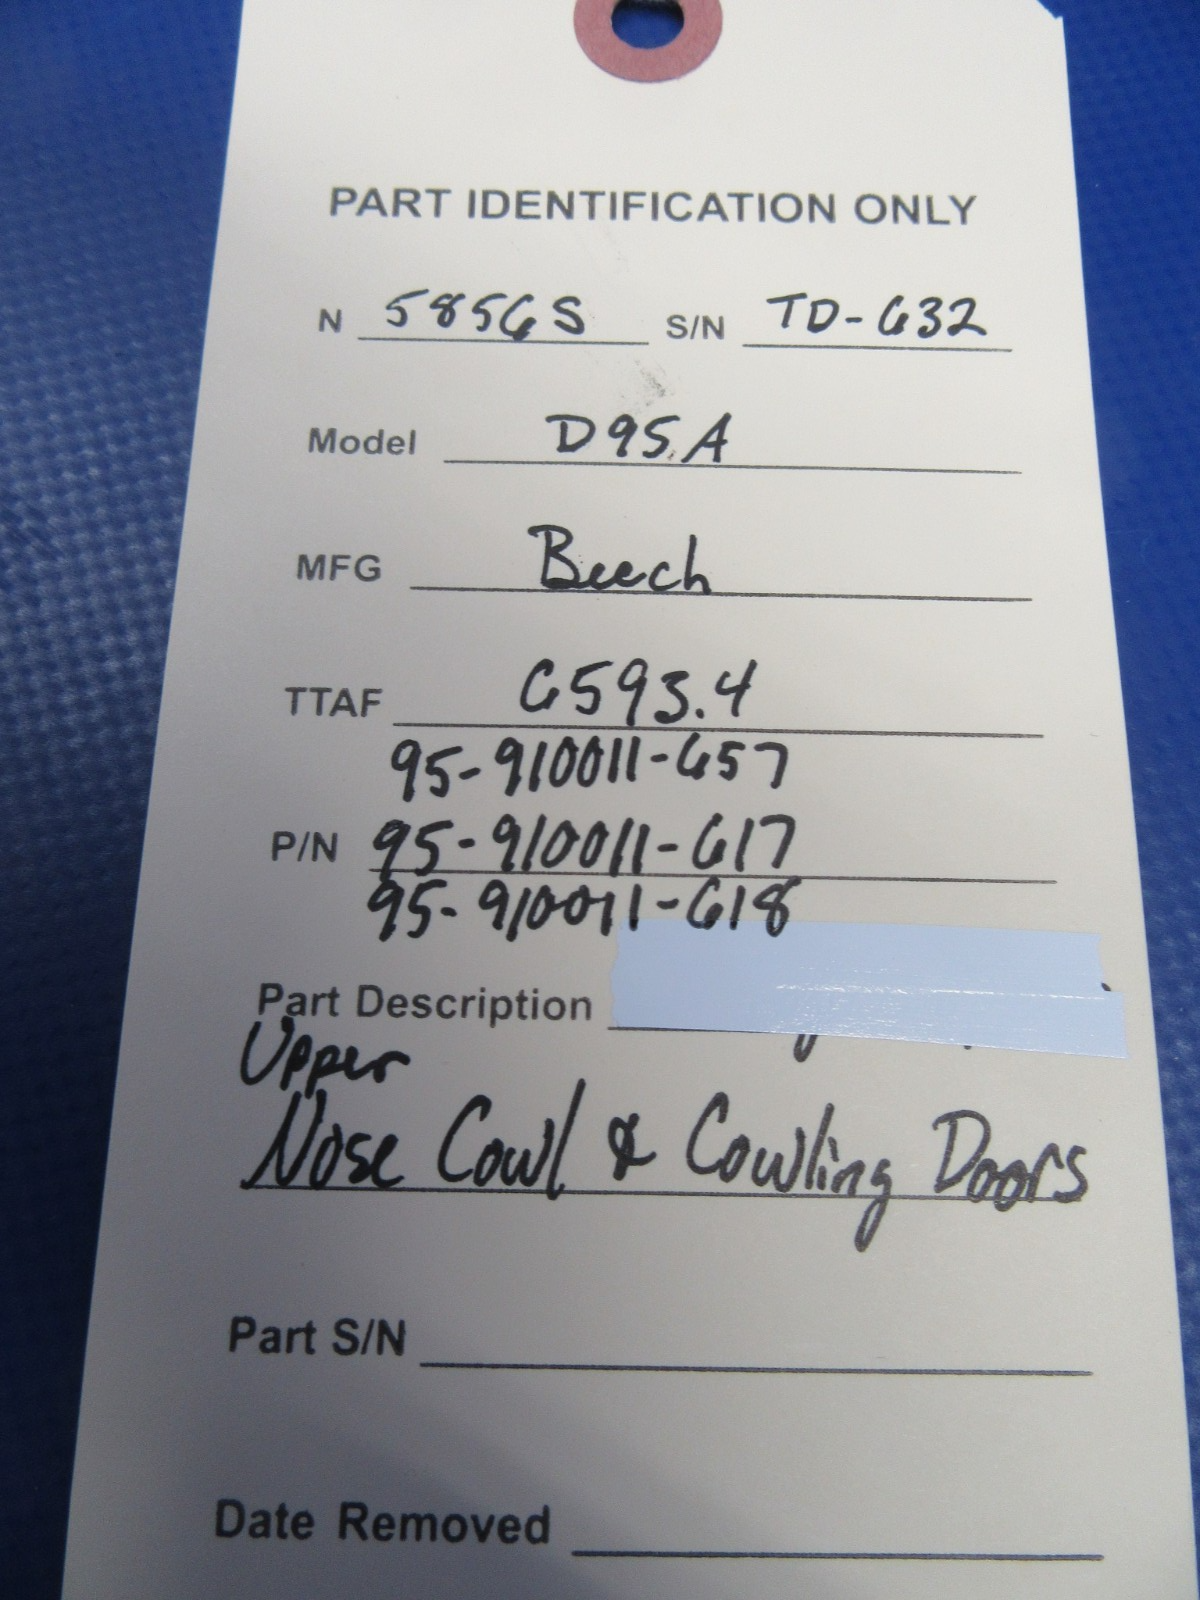 PART IDENTIFICATION ONLY
N 5856S S/N TD-632
Model D95A
MFG Beech
TTAF 6593.4
95-910011-657
P/N 95-910011-617
95-910011-618
Part Description
Upper
Nose Cowl & Cowling Doors
Part S/N
Date Removed